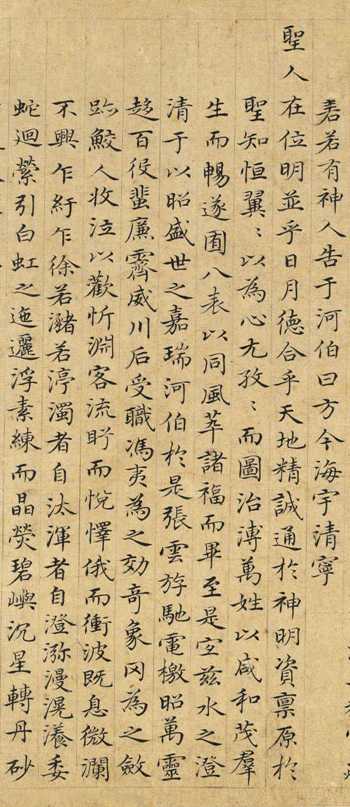 砉若有神人告于河伯曰方今海宇清寧
聖人在位明並乎日月德合乎天地精誠通於神明資稟原於
聖知恒翼〻以為心尤孜〻而圖治溥萬姓以咸和茂羣
生而暢遂囿八表以同風萃諸福而畢至是宜茲水之澄
清于以昭盛世之嘉瑞河伯於是張雲斿馳電檄昭萬靈
趍百役蜚廉霽威川后受職馮夷為之効奇象罔為之斂
跡鮫人收泣以歡忻淵客流眄而悅懌俄而衝波既息微瀾
不興乍紆乍徐若瀦若渟濁者自汰渾者自澄瀰漫滉瀁委
蛇迴縈引白虹之迤邐浮素練而晶熒碧嶼沉星轉丹砂